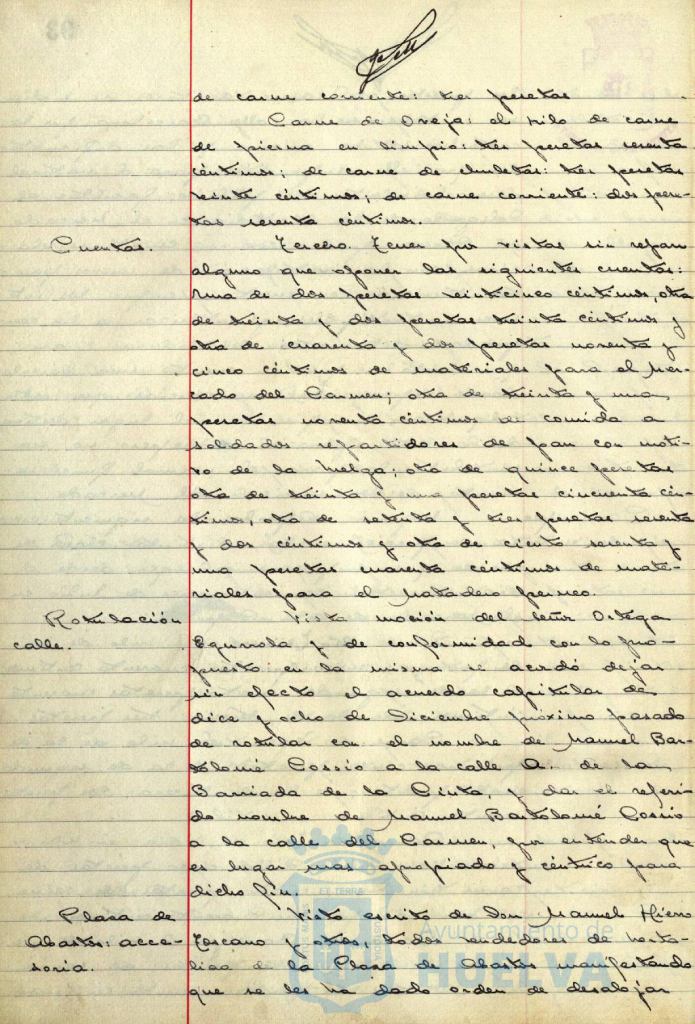 de carne corriente: tres pesetas
Carne de Oveja: el kilo de carne
de pierna en limpio: tres pesetas sesenta
céntimos; de carne de chuletas: tres pesetas
veinte céntimos; de carne corriente: dos pese-
tas sesenta céntimos.
Cuentas. Tercero. Tener por vistas sin reparo
alguno que oponer las siguientes cuentas:
Una de dos pesetas veinticinco céntimos, otra
de treinta y dos pesetas treinta céntimos y
otra de cuarenta y dos pesetas noventa y
cinco céntimos de materiales para el Mer-
cado del Carmen; otra de treinta y una
pesetas noventa céntimos de comida a
soldados repartidores de pan con moti-
vo de la huelga; otra de quince pesetas
otra de treinta y una pesetas cincuenta cén-
timos, otra de setenta y tres pesetas sesenta
y dos céntimos y otra de ciento sesenta y
una pesetas cuarenta céntimos de mate-
riales para el Matadero público.
Rotulación Vista moción del Señor Ortega
calle. Egurrola y de conformidad con lo pro-
puesto en la misma se acordó dejar
sin efecto el acuerdo capitular de
diez y ocho de Diciembre próximo pasado
de rotular con el nombre de Manuel Bar-
tolomé Cossio a la calle A. de la
Barriada de la Cinta, y dar el referi-
do nombre de Manuel Bartolomé Cossio
a la calle del Carmen, por entender que
es lugar mas apropiado y céntrico para
dicho fin.
Plaza de Visto escrito de Don Manuel Hierro
Abastos: acce- Toscano y otros, todos vendedores de horta-
soria. liza de la Plaza de Abastos manifestando
que se les ha dado orden de desalojar
Ayuntamiento de
HUELVA